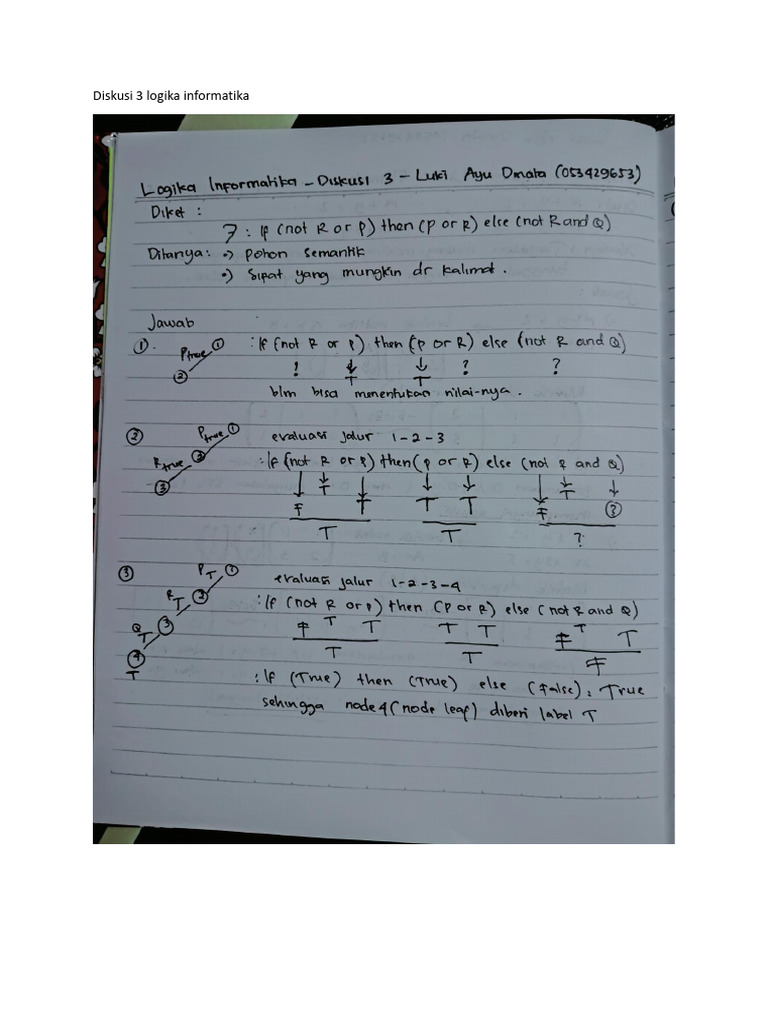 Diskusi 3 logika informatika
Logika Informatika - Diskusi 3 - Luki Ayu Dinata (053429653)
Diket :
7 : If (not R or P) then (P or R) else (not R and Q)
Ditanya : •) Pohon semantik
•) Sipat yang mungkin dr kalimat .
Jawab
① . P true ① : If (not R or P) then (P or R) else (not R and Q)
② ! ↓ ↓ ? ?
T T
blm bisa menentukan nilai-nya .
② P true ① evaluasi jalur 1-2-3
R true ② : If (not R or P) then (P or R) else (not R and Q)
③ ↓ ↓ ↓ ↓ ↓ ↓ ↓ ↓
F T T T T F T ?
T T ?
③ P T ① evaluasi jalur 1-2-3-4
R T ② : If (not R or P) then (P or R) else (not R and Q)
Q T ③ F T T T T F T T
④ T T F
T : If (True) then (True) else (False) : True
sehingga node 4 (node leaf) diberi label T